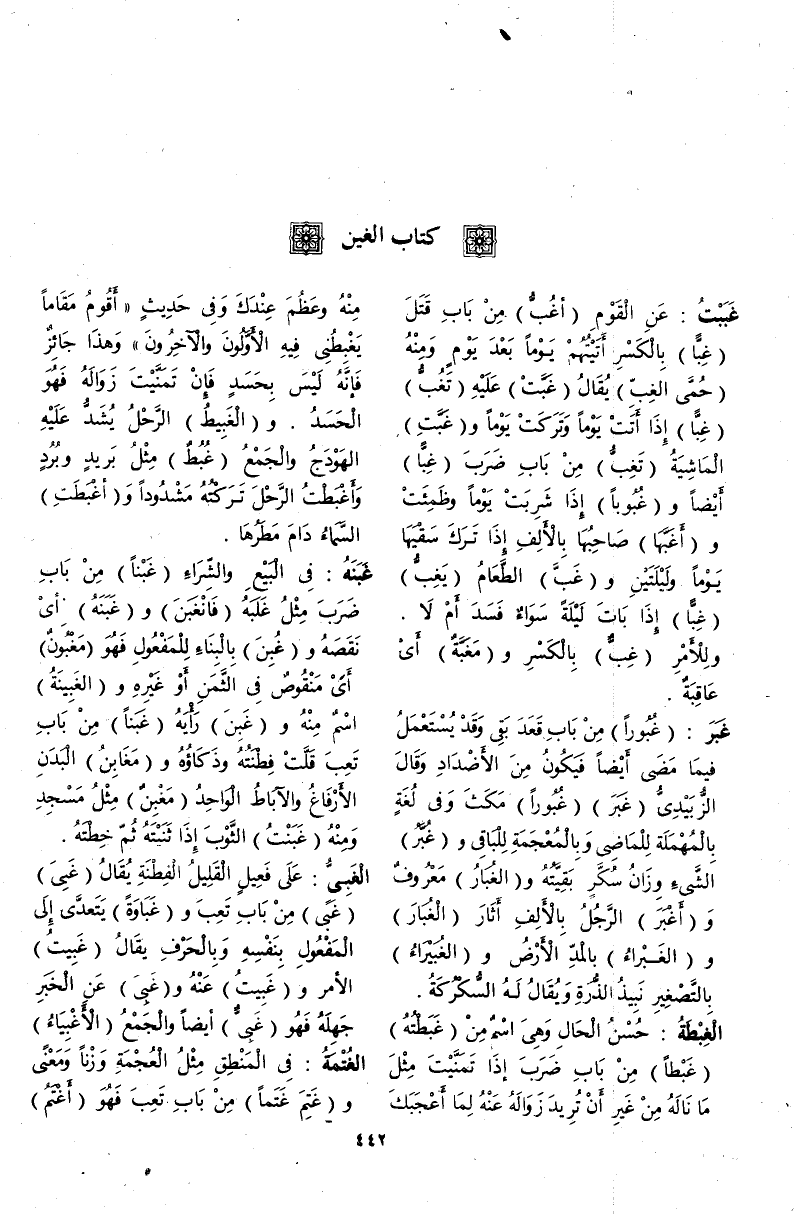 كتاب الغين
غَبَبْتُ : عَنِ الْقَوْمِ ( أَغُبُّ ) مِنْ بَابِ قَتَلَ
( غِبًّا ) بِالْكَسْرِ أَتَيْتُهُمْ يَوْماً بَعْدَ يَوْمٍ وَمِنْهُ
( حُمَّى الغِبِّ ) يُقَالُ ( غَبَّتْ ) عَلَيْهِ ( تَغُبُّ )
( غِبًّا ) إِذَا أَتَتْ يَوْماً وَتَرَكَتْ يَوْماً و ( غَبَّتِ )
الْمَاشِيَةُ ( تَغِبُّ ) مِنْ بَابِ ضَرَبَ ( غِبًّا )
أَيْضاً و ( غُبُوباً ) إِذَا شَرِبَتْ يَوْماً وظَمِئَتْ
و ( أَغَبَّهَا ) صَاحِبُهَا بِالْأَلِفِ إِذَا تَرَكَ سَقْيَهَا
يَوْماً ولَيْلَتَيْنِ و ( غَبَّ ) الطَّعَامُ ( يَغِبُّ )
( غِبًّا ) إِذَا بَاتَ لَيْلَةً سَوَاءٌ فَسَدَ أَمْ لَا .
ولِلْأَمْرِ ( غِبٌّ ) بِالْكَسْرِ و ( مَغَبَّةٌ ) أَىْ
عَاقِبَةٌ .
غَبَرَ : ( غُبُوراً ) مِنْ بَابِ قَعَدَ بَقِىَ وَقَدْ يُسْتَعْمَلُ
فِيمَا مَضَى أَيْضاً فَيَكُونُ مِنَ الْأَضْدَادِ وَقَالَ
الزُّبَيْدِىُّ ( غَبَرَ ) ( غُبُوراً ) مَكَثَ وَفى لُغَةٍ
بِالْمُهْمَلَةِ لِلْمَاضِى وَبِالْمُعْجَمَةِ لِلْبَاقِى و ( غُبَّرُ )
الشَّىْءِ وِزَانُ سُكَّرٍ بَقِيَّتُهُ و ( الغُبَارُ ) مَعْرُوفٌ
وَ ( أَغْبَرَ ) الرَّجُلُ بِالْأَلِفِ أَثَارَ ( الْغُبَارَ )
و ( الغَبْرَاءُ ) بِالْمَدِّ الْأَرْضُ و ( الغُبَيْرَاءُ )
بِالتَّصْغِيرِ نَبِيذُ الذُّرَةِ وَيُقَالُ لَهُ السُّكْرُكَةُ .
الْغِبْطَةُ : حُسْنُ الْحَالِ وَهِىَ اسْمٌ مِنْ ( غَبَطْتُهُ )
( غَبْطاً ) مِنْ بَابِ ضَرَبَ إِذَا تَمَنَّيْتَ مِثْلَ
مَا نَالَهُ مِنْ غَيْرِ أَنْ تُرِيدَ زَوَالَهُ عَنْهُ لِمَا أَعْجَبَكَ
مِنْهُ وعَظُمَ عِنْدَكَ وَفى حَدِيثٍ « أَقُومُ مَقَاماً
يَغْبِطُنِى فِيهِ الْأَوَّلُونَ والْآخِرُونَ » وَهذَا جَائِزٌ
فَإِنَّهُ لَيْسَ بِحَسَدٍ فَإِنْ تَمَنَّيْتَ زَوَالَهُ فَهُوَ
الْحَسَدُ . و ( الْغَبِيطُ ) الرَّحْلُ يُشَدُّ عَلَيْهِ
الهَوْدَجُ والْجَمْعُ ( غُبُطٌ ) مِثْلُ بَرِيدٍ وبُرُدٍ
وَأَغْبَطْتُ الرَّحْلَ تَرَكْتُهُ مَشْدُوداً وَ ( أَغْبَطَتِ )
السَّمَاءُ دَامَ مَطَرُهَا .
غَبَنَهُ : فِى الْبَيْعِ والشِّرَاءِ ( غَبْناً ) مِنْ بَابِ
ضَرَبَ مِثْلُ غَلَبَهُ ( فَانْغَبَنَ ) و ( غَبَنَهُ ) أَىْ
نَقَصَهُ و ( غُبِنَ ) بِالْبِنَاءِ لِلْمَفْعُولِ فَهُوَ ( مَغْبُونٌ )
أَىْ مَنْقُوصٌ فِى الثَّمَنِ أَوْ غَيْرِهِ و ( الغَبِينَةُ )
اسْمٌ مِنْهُ و ( غَبِنَ ) رَأْيَهُ ( غَبَناً ) مِنْ بَابِ
تَعِبَ قَلَّتْ فِطْنَتُهُ وذَكَاؤُهُ و ( مَغَابِنُ ) الْبَدَنِ
الأَرْفَاغُ والآبَاطُ الْوَاحِدُ ( مَغْبِنٌ ) مِثْلُ مَسْجِدٍ
وَمِنْهُ ( غَبَنْتُ ) الثَّوْبَ إِذَا ثَنَيْتَهُ ثُمَّ خِطْتَهُ .
الْغَبِىُّ : عَلَى فَعِيلٍ الْقَلِيلُ الْفِطْنَةِ يُقَالُ ( غَبِىَ )
( غَبًى ) مِنْ بَابِ تَعِبَ و ( غَبَاوَةً ) يَتَعَدَّى إِلَى
الْمَفْعُولِ بِنَفْسِهِ وَبِالْحَرْفِ يقَالُ ( غَبِيتُ )
الأَمْرَ و ( غَبِيتُ ) عَنْهُ و ( غَبِىَ ) عَنِ الْخَبَرِ
جَهِلَهُ فَهُوَ ( غَبِىٌّ ) أيضاً والْجَمْعُ ( الْأَغْبِيَاءُ )
الْغُتْمَةُ : فِى الْمَنْطِقِ مِثْلُ الْعُجْمَةِ وَزْناً وَمَعْنًى
و ( غَتِمَ غَتَماً ) مِنْ بَابِ تَعِبَ فَهُوَ ( أَغْتَمُ )
٤٤٢